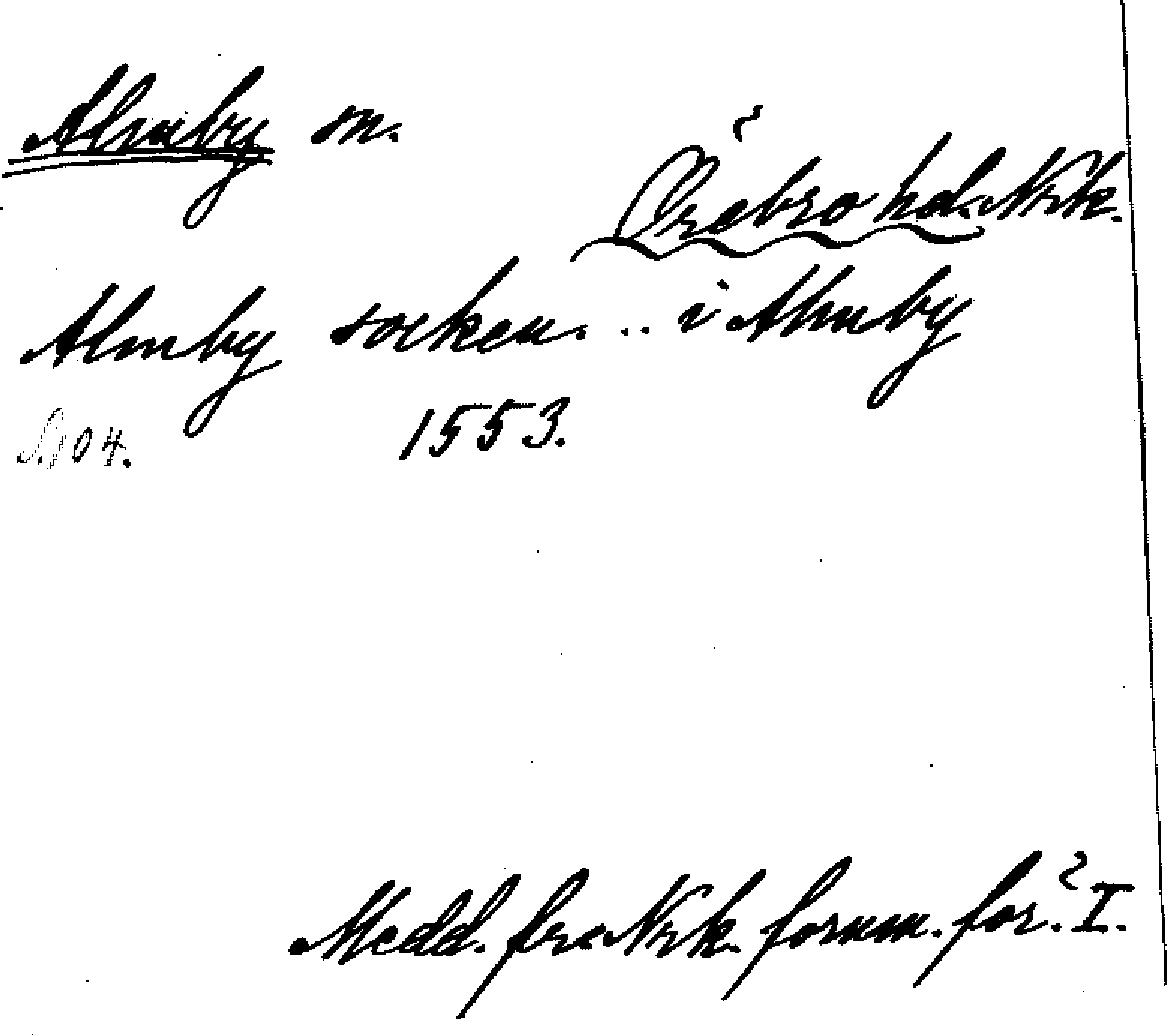 Almby sn.
Örebro hd. Nrk.
Almby socken... i Almby
S. 104. 1553.
Medd. fr. Nrk. fornm. för. I.